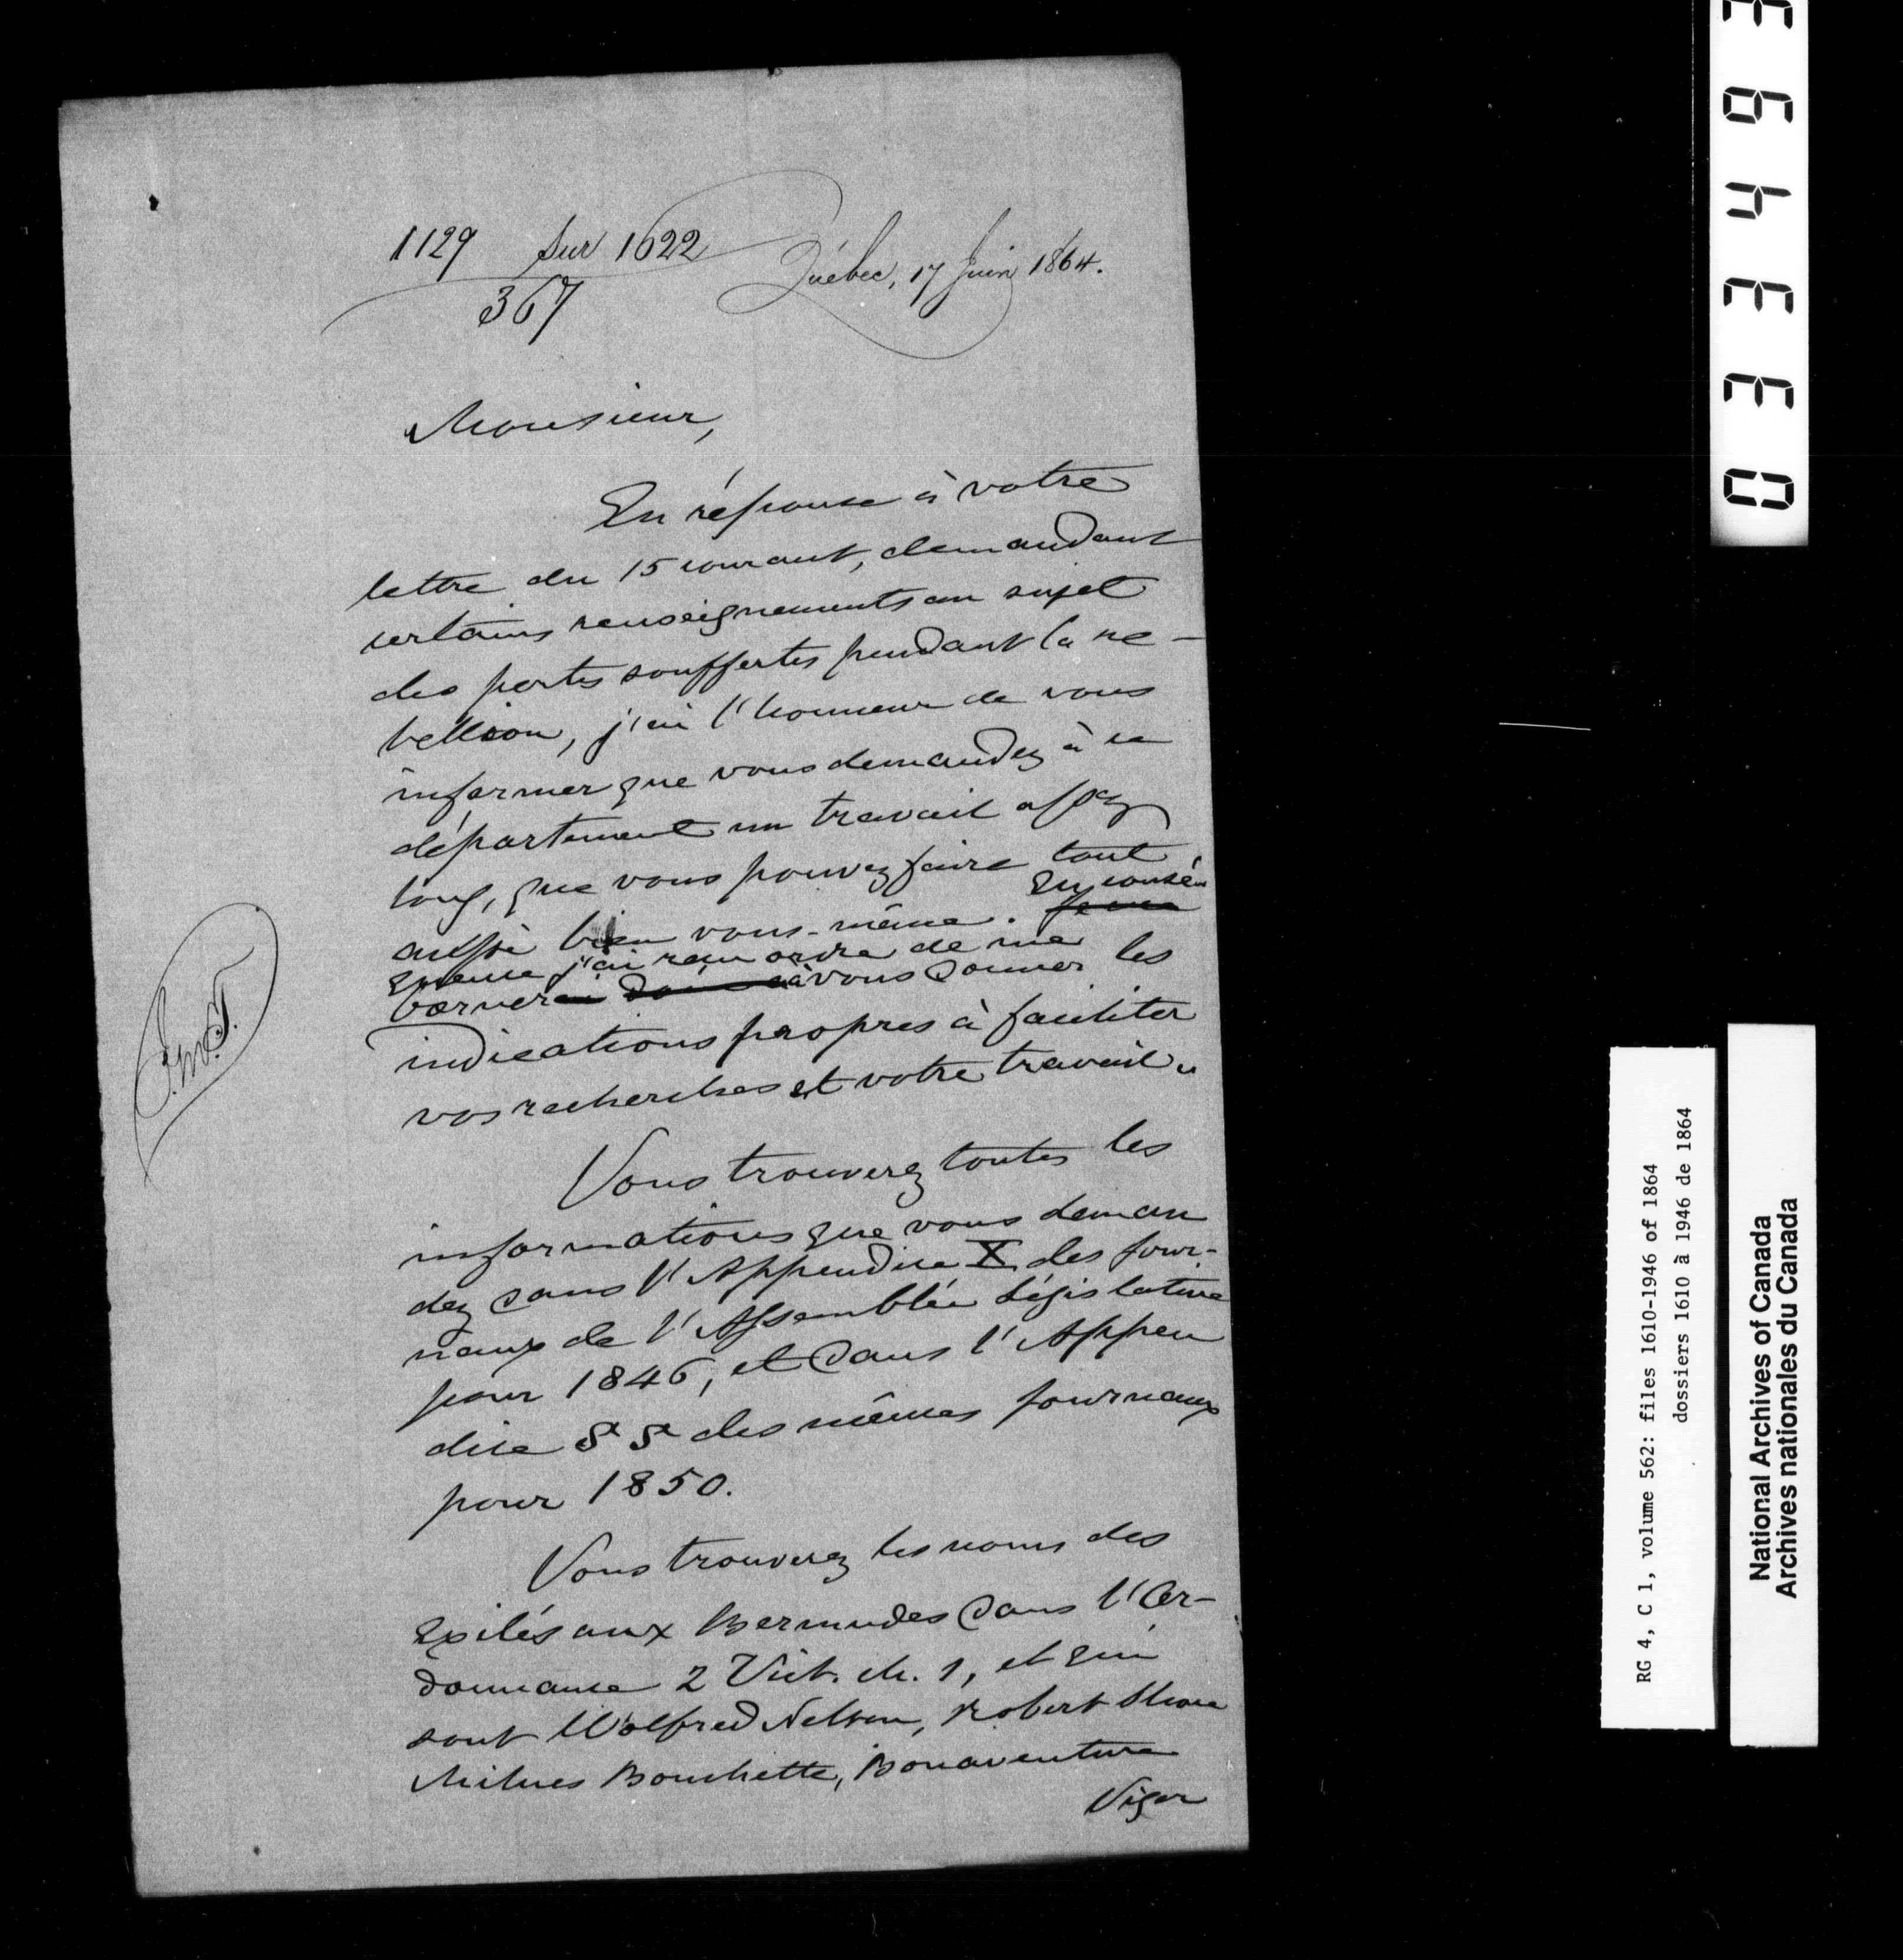 1129 sur 1622
367
Québec, 17 Juin 1864.
Monsieur,
En réponse à votre
lettre du 15 courant, demandant
certains renseignements au sujet
des pertes souffertes pendant la re-
bellion, j'ai l'honneur de vous
informer que vous demandez à ce
département un travail assez
long, que vous pouvez faire tout
aussi bien vous-même. En consé
quence j'ai reçu ordre de me
borner à vous donner les
indications propres à faciliter
vos recherches et votre travail.
Vous trouverez toutes les
informations que vous deman
dez dans l'Appendice X des Jour-
naux de l'Assemblée Législative
pour 1846, et dans l'Appen
dice S S des mêmes Journaux
pour 1850.
Vous trouverez les noms des
Exilés aux Bermudes dans l'Or-
donnance 2 Vict. ch. 1, et qui
sont Wolfred Nelson, Robert Shore
Milnes Bouchette, Bonaventure
Viger
033493
RG 4, C 1, volume 562: files 1610-1946 of 1864
dossiers 1610 à 1946 de 1864
National Archives of Canada
Archives nationales du Canada